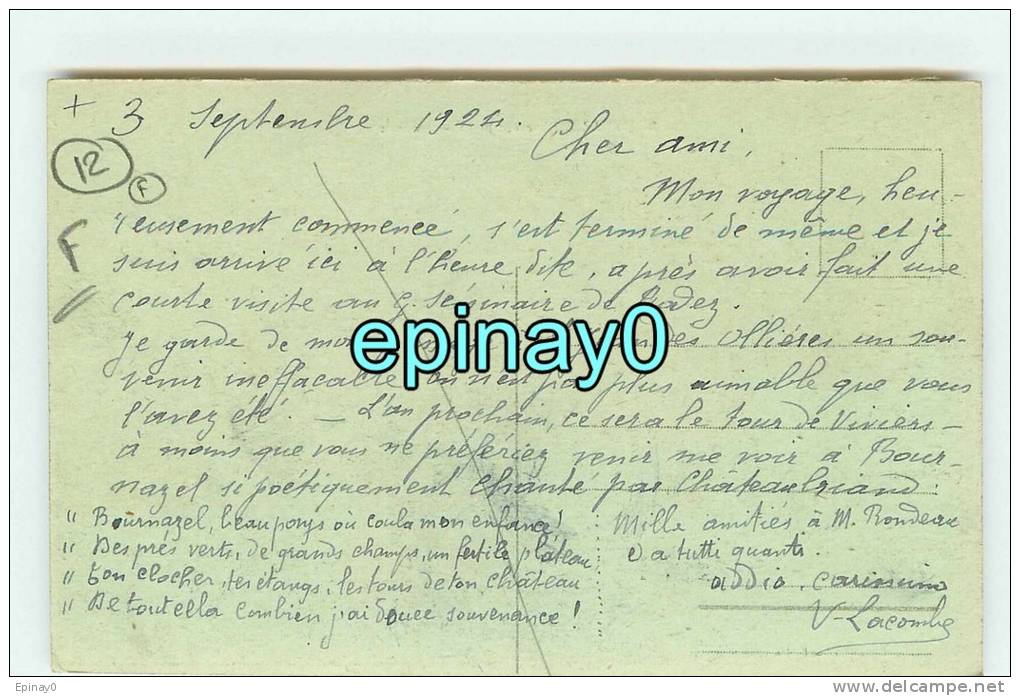 + 3 Septembre 1924.
Cher ami,
12
F
Mon voyage, heu-
reusement commencé, s'est terminé de même et je
F
suis arrivé ici à l'heure dite, après avoir fait une
courte visite au g. séminaire de Rodez.
Je garde de mon des Ollières un sou-
epinay0
venir ineffaçable on n'est pas plus aimable que vous
l'avez été. — L'an prochain, ce sera le tour de Viviers —
à moins que vous ne préfériez venir me voir à Bour-
nazel si poétiquement chanté par Châteaubriand :
" Bournazel, beau pays où coula mon enfance !
" Des prés verts, de grands champs, un fertile plateau
" Ton clocher, tes étangs, les tours de ton château
" De tout cella combien j'ai douce souvenance !
Mille amitiés à M. Rondeau
e a tutti quanti.
addio, carissimo
V. Lacombe
Epinay0
www.delcampe.net